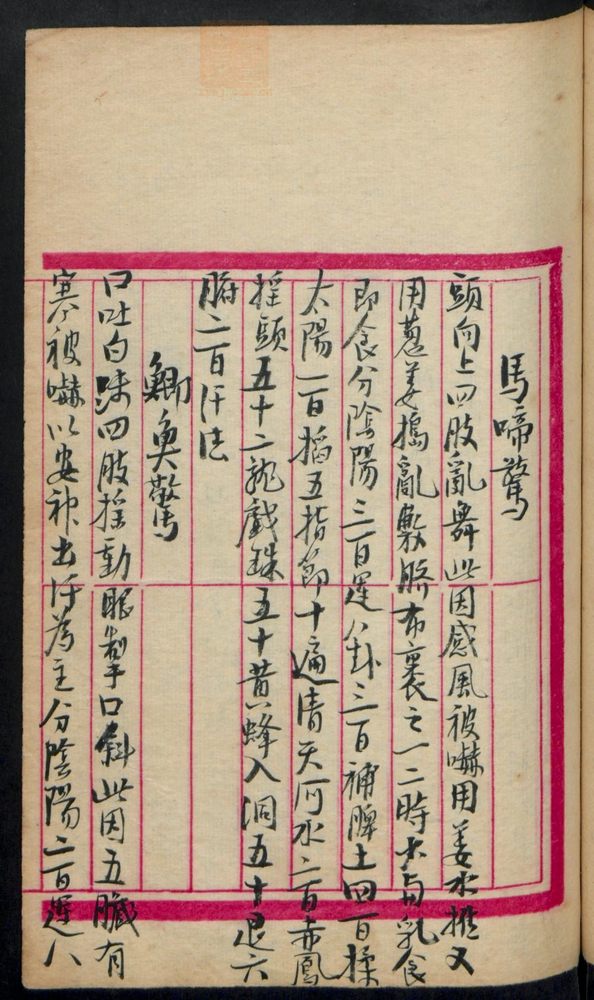 馬啼驚
頭向上四肢亂舞此因感風被嚇用姜水推又
用蔥姜搗亂敷臍布裹之一二時不與乳食
即食分陰陽三百運八卦三百補脾土四百揉
太陽一百掐五指節十遍清天河水二百赤鳳
摇頭五十二龍戲珠五十黄蜂入洞五十退六
腑二百汗法
鯽魚驚
口吐白沫四肢摇動眼掣口斜此因五臟有
寒被嚇以安神出汗為主分陰陽二百運八